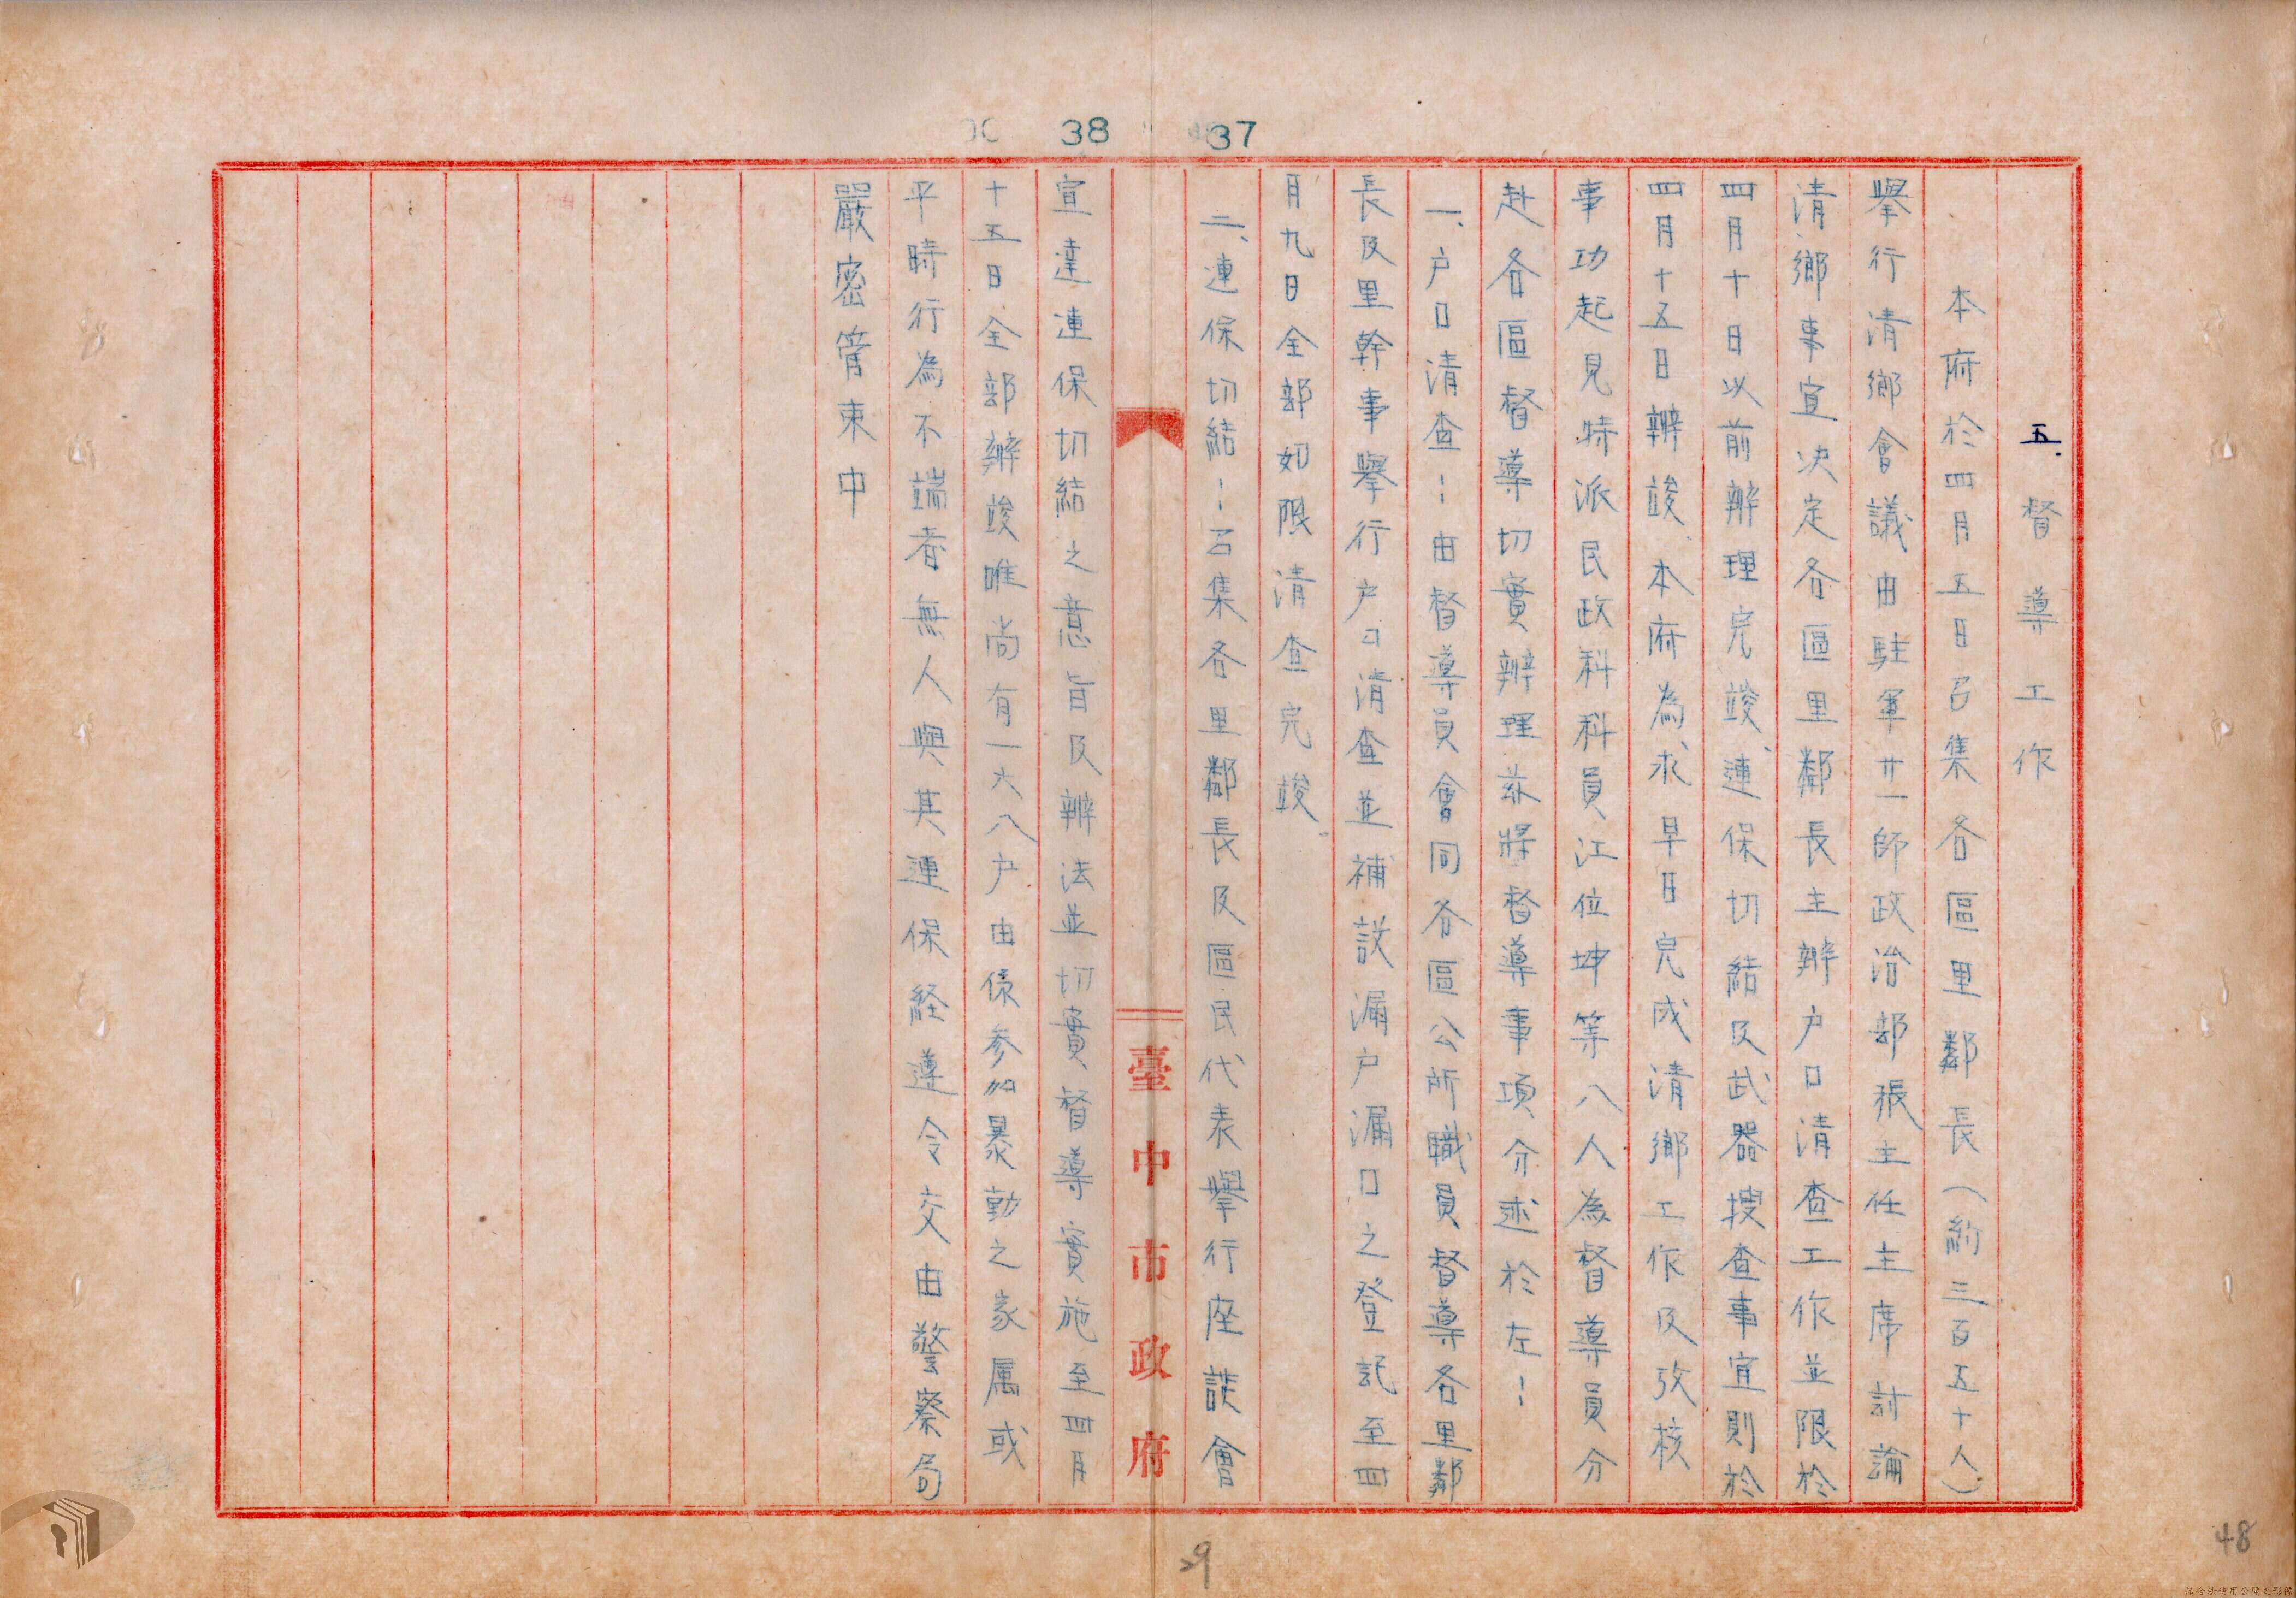 37
38
五.督導工作
本府於四月五日召集各區里鄰長(約三百五十人)
舉行清鄉會議由駐軍廿一師政治部張主任主席討論
清鄉事宜決定各區里鄰長主辦户口清查工作並限於
四月十日以前辦理完竣、連保切結及武器搜查事宜則於
四月十五日辦竣、本府為求早日完成清鄉工作及攷核
事功起見特派民政科科員江位坤等八人為督導員分
赴各區督導切實辦理茲將督導事項分述於左:
一、户口清查:由督導員會同各區公所職員督導各里鄰
長及里幹事舉行户口清查並補設漏户漏口之登記至四
月九日全部如限清查完竣
二、連保切結:召集各里鄰長及區民代表舉行座談會
臺中市政府
宣達連保切結之意旨及辦法並切實督導實施至四月
十五日全部辦竣唯尚有一六八户由係參加暴動之家属或
平時行為不端者無人與其連保経遵令交由警察局
嚴密管束中
29
48
請合法使用公開之影像